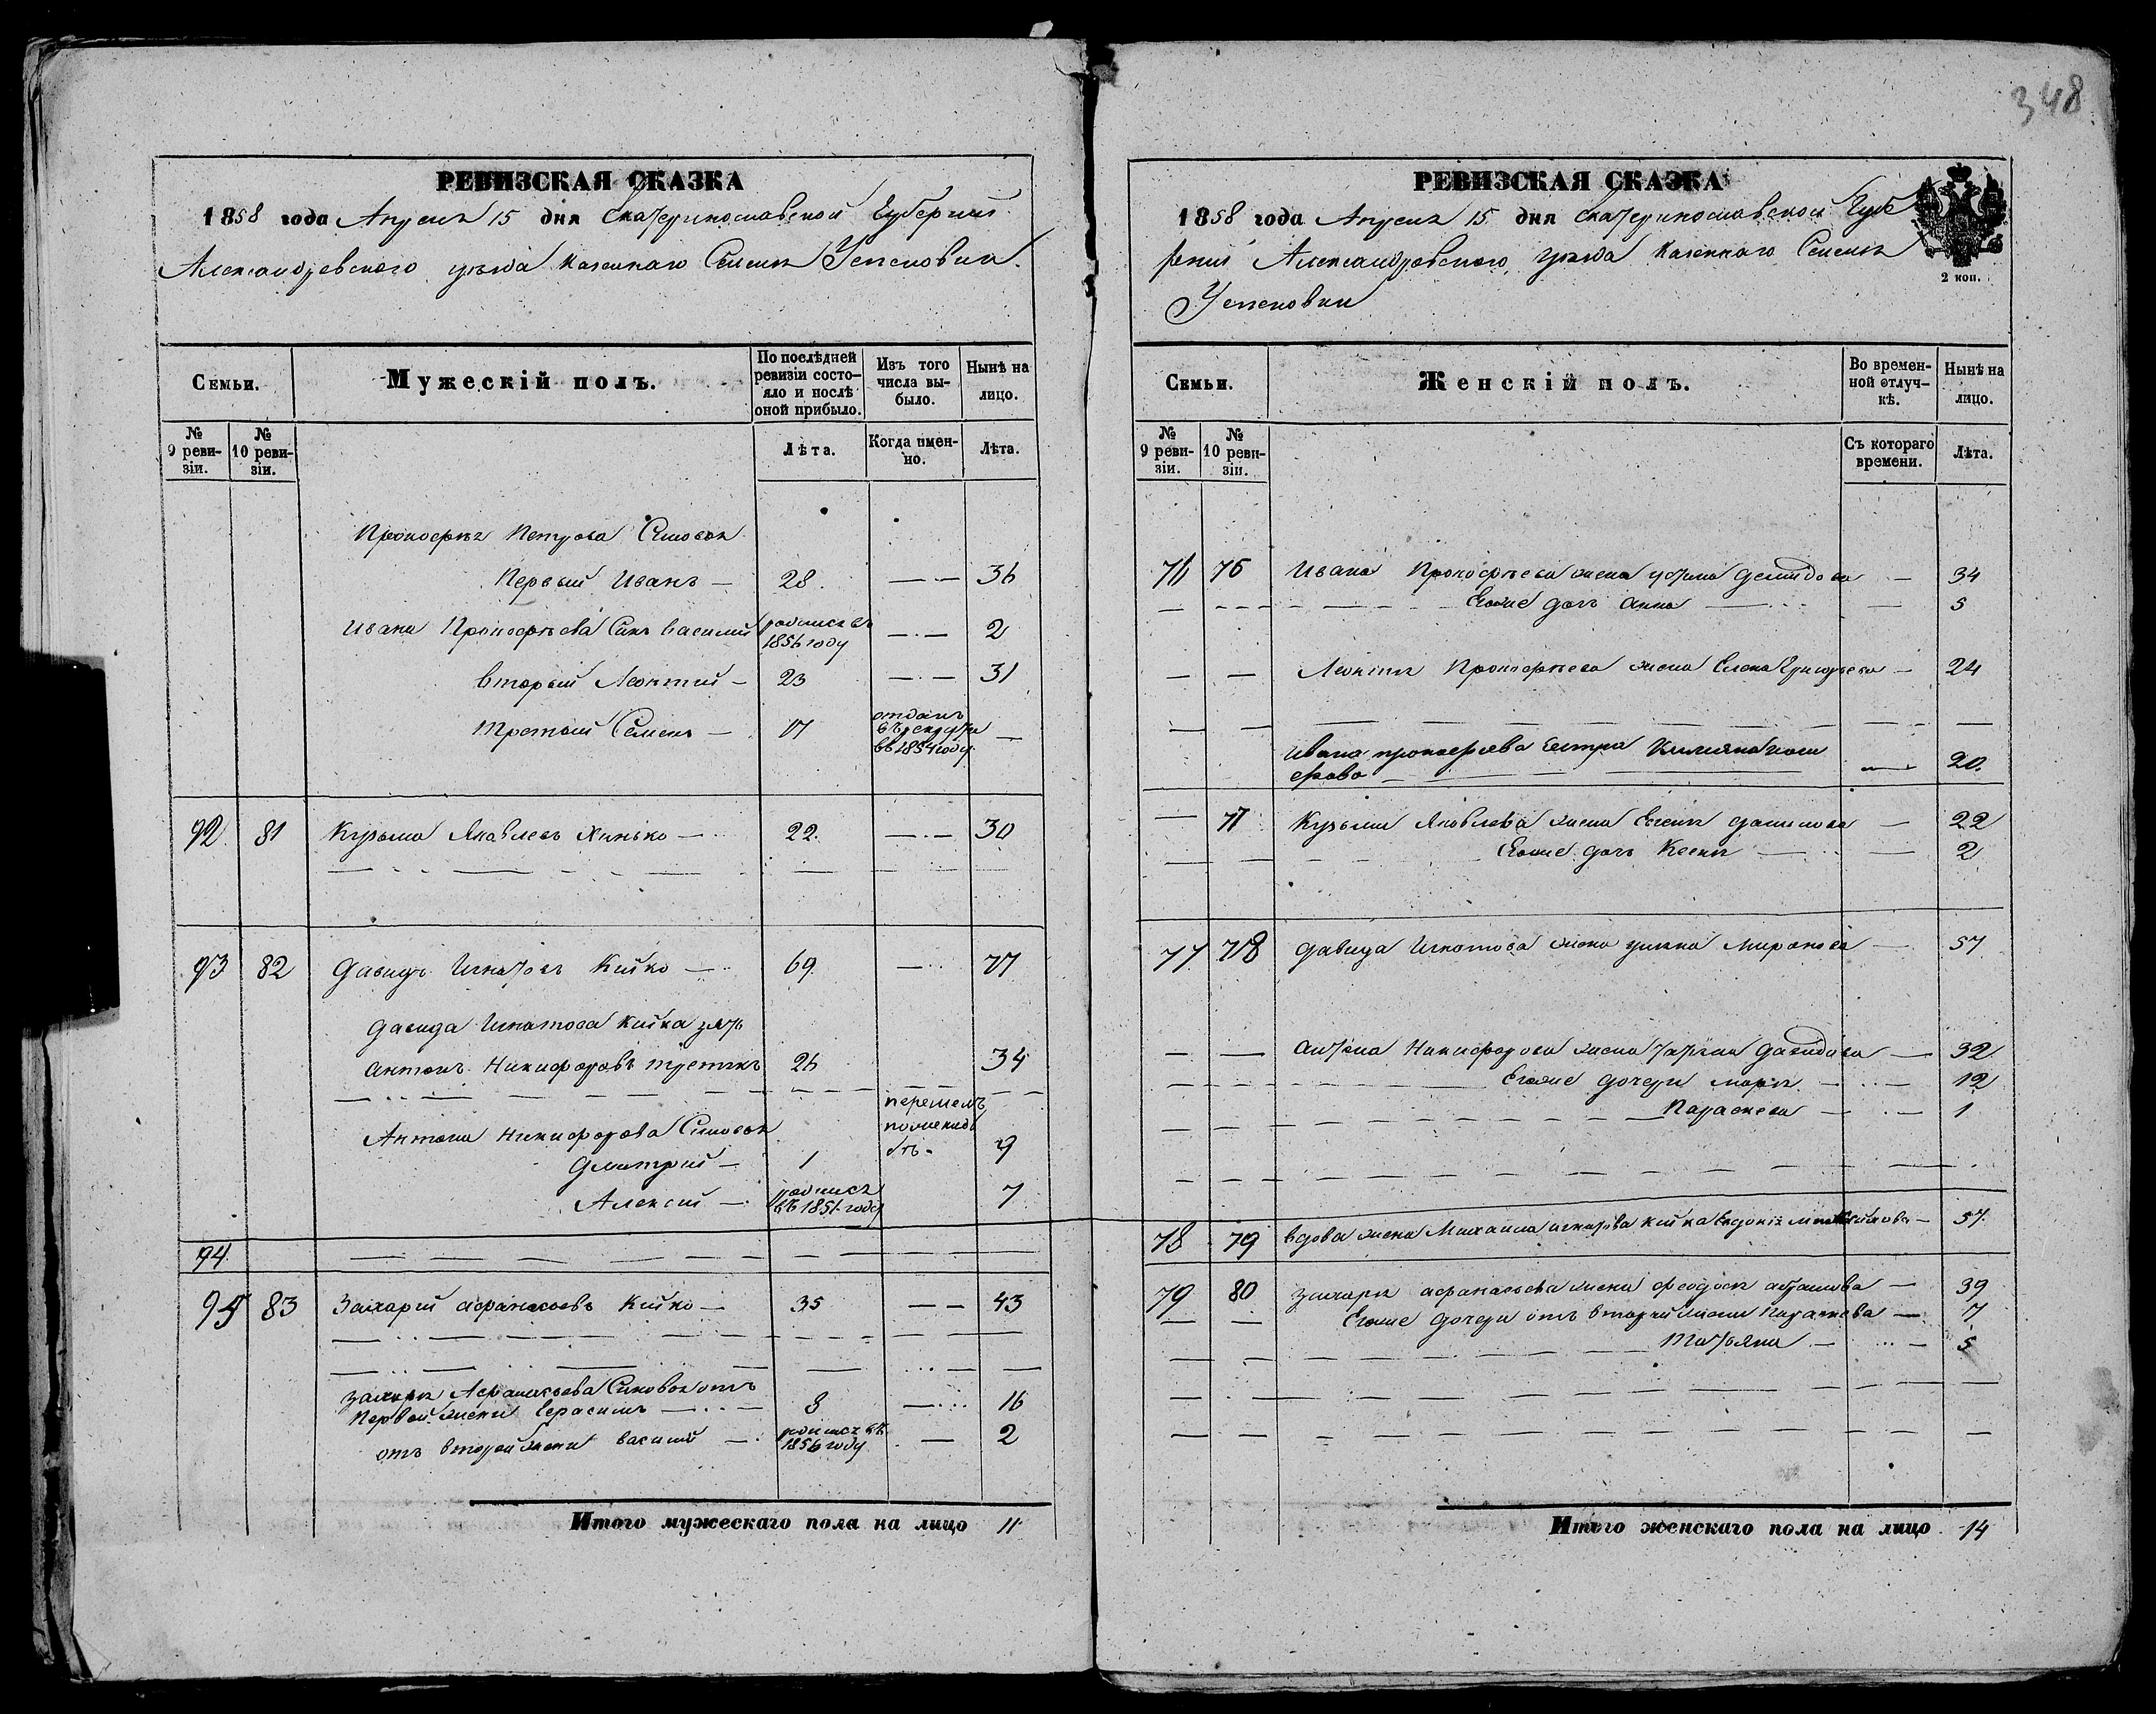 348
РЕВИЗСКАЯ СКАЗКА
1858 года Апреля 15 дня Екатеринославской Губернии
Александровского уезда казеннаго Селения Успеновки.
Семьи.
Мужескій полъ.
По послѣдней ревизіи состояло и послѣ оной прибыло.
Изъ того числа выбыло.
Нынѣ на лицо.
№ 9 ревизіи.
№ 10 ревизіи.
Лѣта.
Когда именно.
Лѣта.
Прокофія Петрова Сыновья
Первый Иванъ — 28 — — 36
Ивана Прокофьева Сынъ Василий родился въ 1856 году — — 2
вторый Леонтий — 23 — — 31
Третий Семенъ — 17 отданъ въ рекруты въ 1854 году —
92 81 Кузьма Яковлевъ Хинько — 22 — — 30
93 82 Давидъ Игнатовъ Кийко — 69 — 77
Давида Игнатова Кийка зять
Антонъ Никифоровъ 26 34
Антона Никифорова Сыновья
Дмитрий — 1 9
Алексий — родился въ 1851 году 7
94
95 83 Захарий Афанасьевъ Кийко — 35 — — 43
Захария Афанасьева Сыновья отъ
Первой жены Герасимъ — 8 — 16
отъ второй жены Василий — родился въ 1856 году — 2
Итого мужескаго пола на лицо 11
РЕВИЗСКАЯ СКАЗКА
1858 года Апреля 15 дня Екатеринославской Губе
рнии Александровского уезда казеннаго Селения
Успеновки
2 коп.
Семьи.
Женскій полъ.
Во временной отлучкѣ.
Нынѣ на лицо.
№ 9 ревизіи.
№ 10 ревизіи.
Съ котораго времени.
Лѣта.
76 76 Ивана Прокофьева жена Демидова — 34
Егоже дочь Анна — — 5
Леонтия Прокофьева жена Елена Григорьева — 24
Ивана Прокофьева
— 20.
77 Кузьмы Яковлева жена Данилова — 22
Егоже дочь — — 2
77 78 Давида Игнатова жена Миронова — 57
Антона Никифорова жена Давидова — 32
Егоже дочери Мария — — 12
Параскева — — 1
78 79 вдова жена Михаила Игнатова Кийка Евдокия — 57.
79 80 Захария Афанасьева жена Феодосия — 39
Егоже дочери отъ второй жены Параскева — 7
Татьяна — — 5
Итого женскаго пола на лицо 14